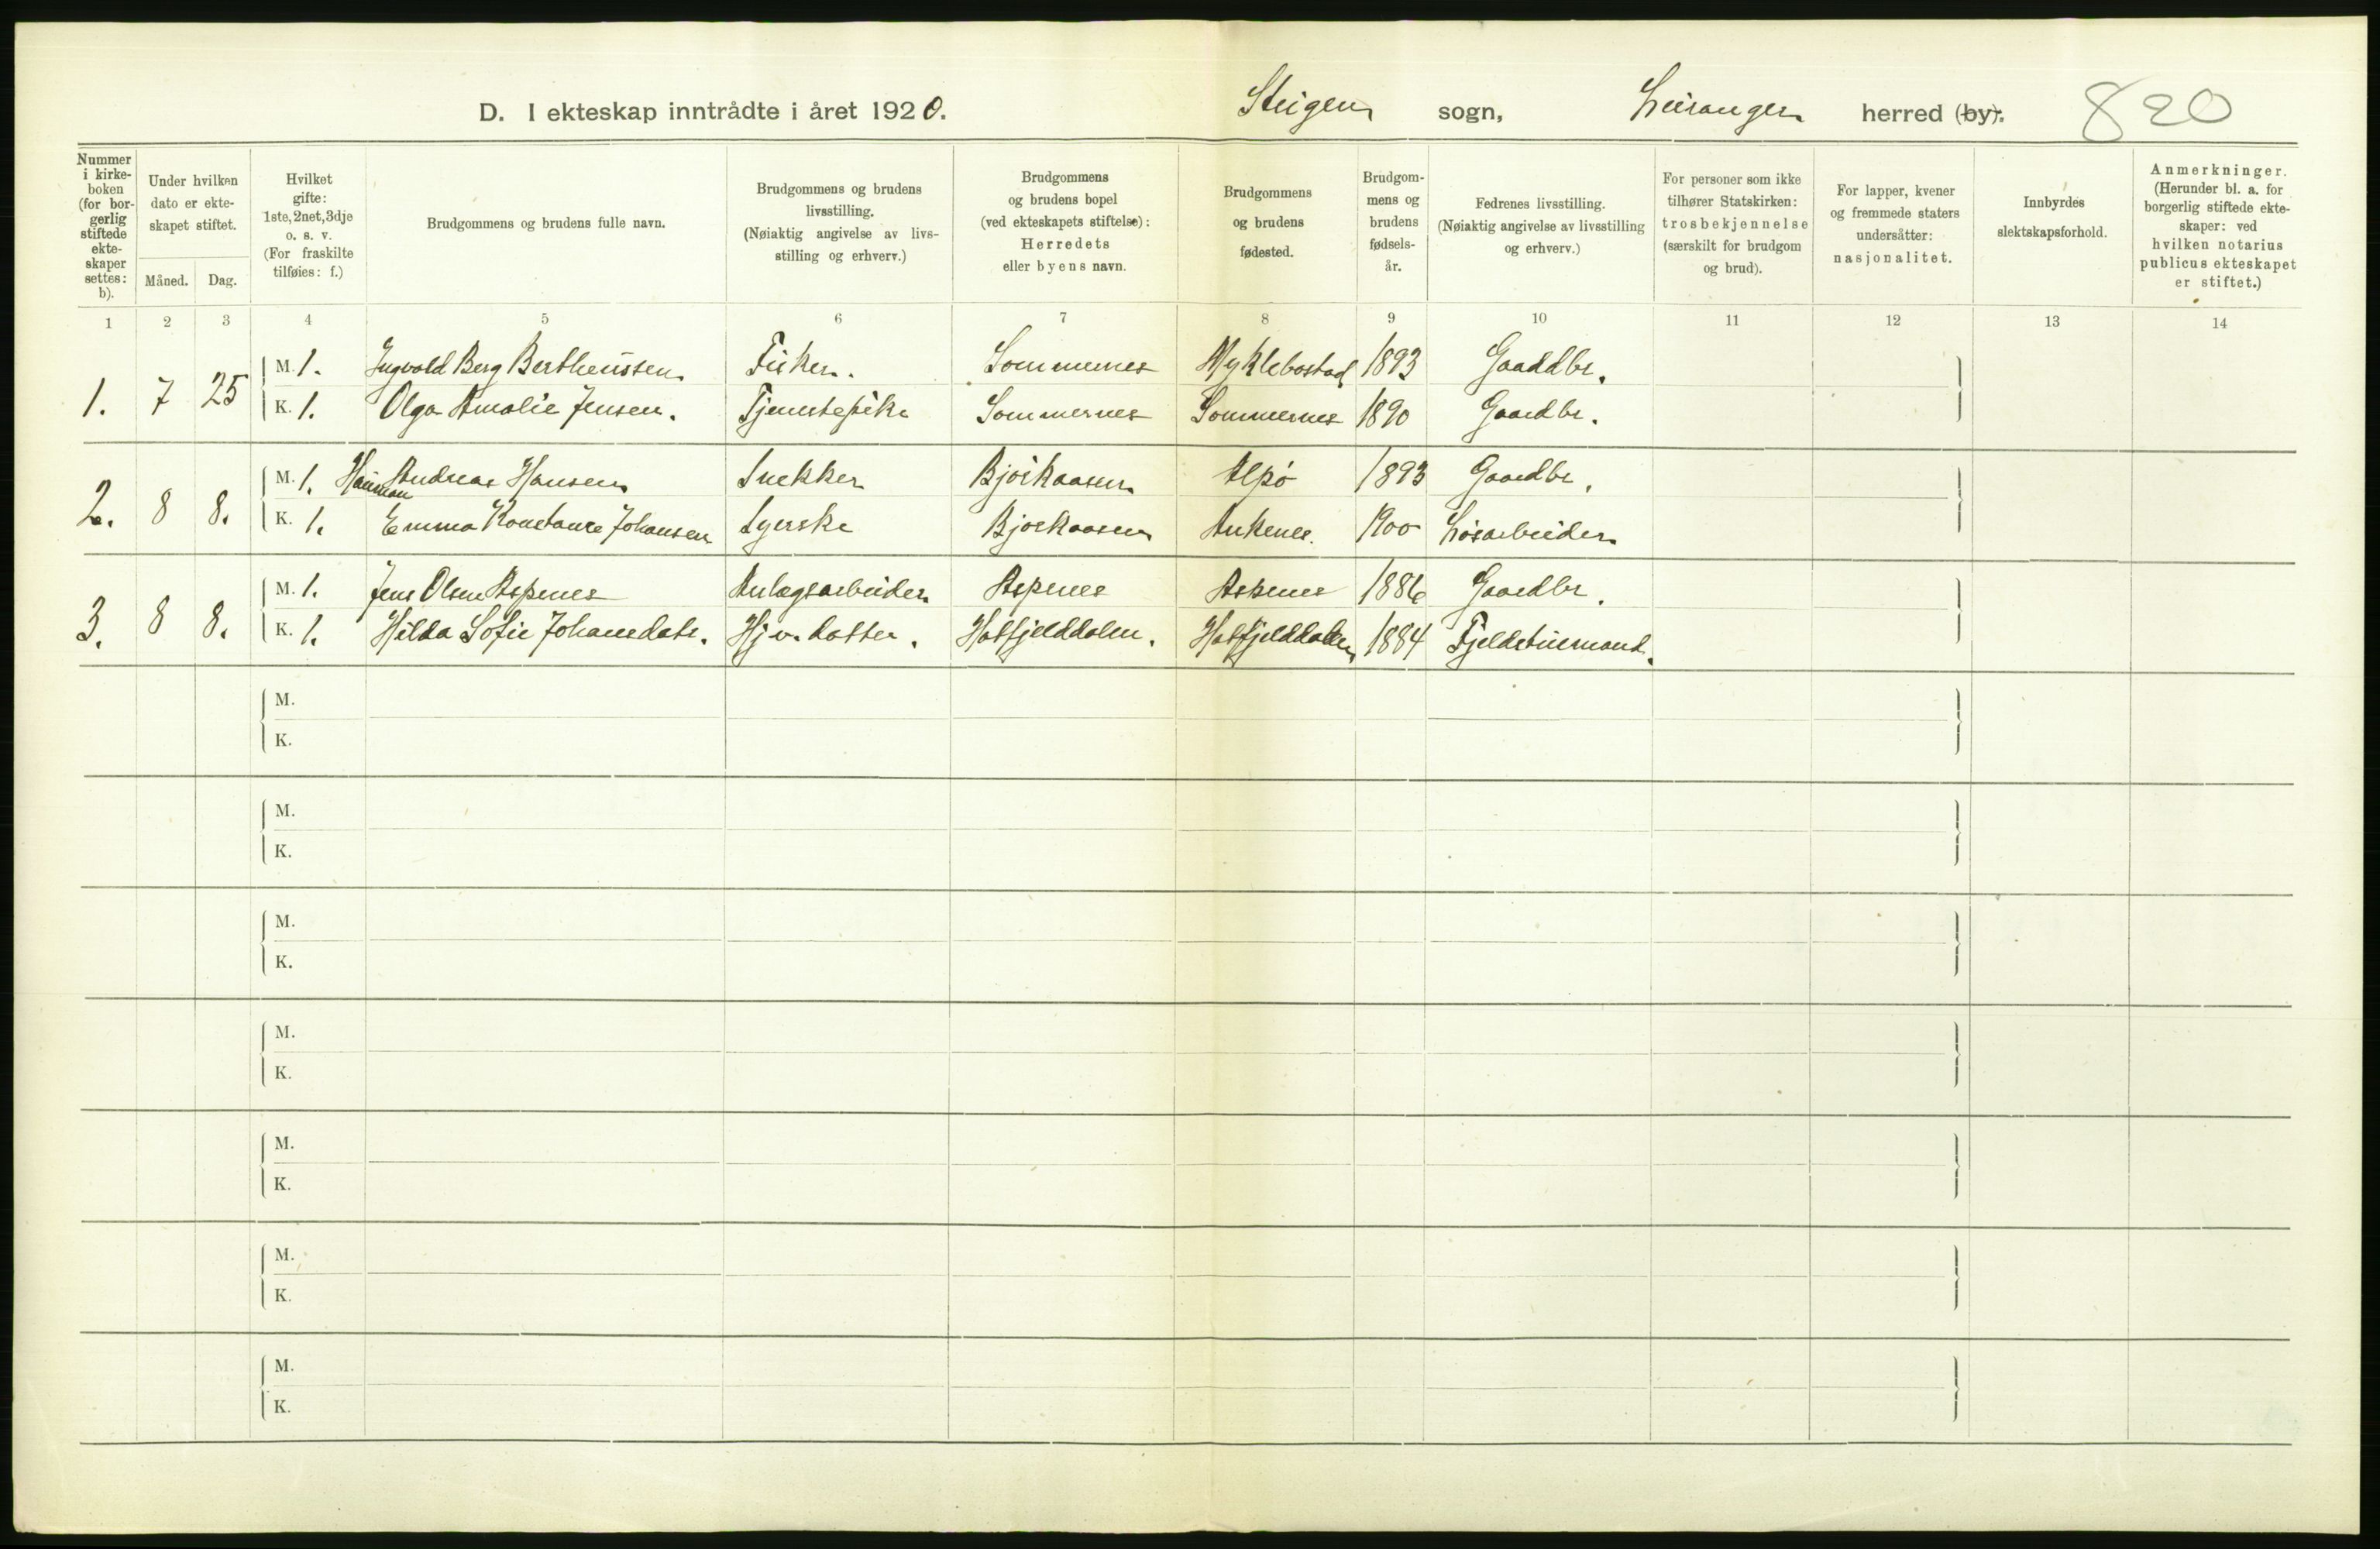 D. I ekteskap inntrådte i året 1920. Steigen sogn, Leiranger herred (by). 820
Nummer i kirkeboken (for borgerlig stiftede ekteskaper settes: b).
Under hvilken dato er ekteskapet stiftet.
Måned. Dag.
Hvilket gifte: 1ste, 2net, 3dje o. s. v. (For fraskilte tilføies: f.)
Brudgommens og brudens fulle navn.
Brudgommens og brudens livsstilling. (Nøiaktig angivelse av livsstilling og erhverv.)
Brudgommens og brudens bopel (ved ekteskapets stiftelse): Herredets eller byens navn.
Brudgommens og brudens fødested.
Brudgommens og brudens fødselsår.
Fedrenes livsstilling. (Nøiaktig angivelse av livsstilling og erhverv.)
For personer som ikke tilhører Statskirken: trosbekjennelse (særskilt for brudgom og brud).
For lapper, kvener og fremmede staters undersåtter: nasjonalitet.
Innbyrdes slektskapsforhold.
Anmerkninger. (Herunder bl. a. for borgerlig stiftede ekteskaper: ved hvilken notarius publicus ekteskapet er stiftet.)
1 2 3 4 5 6 7 8 9 10 11 12 13 14
1. 7 25 M. 1. Ingvald Berg Bertheussen Fisker. Sommernes Myklebostad 1893 Gaardbr.
K. 1. Olga Amalie Jensen. Tjenestepike Sommernes Sommernes 1890 Gaardbr.
2. 8 8. M. 1. Andreas Hansen Snekker Bjørkaasen 1893 Gaardbr.
K. 1. Emma Konstance Johansen Syerske Bjørkaasen Ankenes. 1900 Løsarbeider
3. 8 8. M. 1. Jens Olsen Aspenes Anlægsarbeider Aspenes Aspenes 1886 Gaardbr.
K. 1. Hilda Sofie Johansdatr. Hjv. datter. Hatfjelddalen. Hatfjelddalen 1884 Fjeldstuemand.
M.
K.
M.
K.
M.
K.
M.
K.
M.
K.
M.
K.
M.
K.